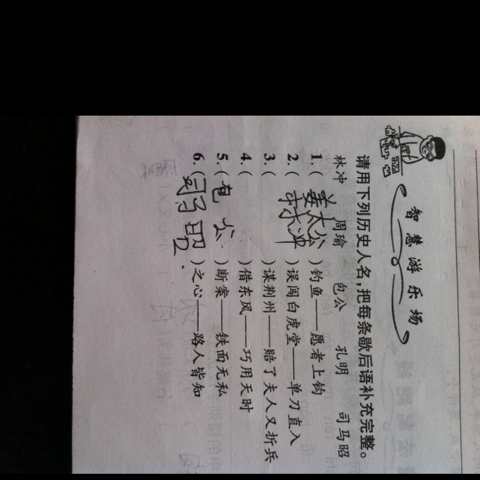 智慧游乐场
请用下列历史人名,把每条歇后语补充完整。
林冲 周瑜 包公 孔明 司马昭
1.(姜太公)钓鱼——愿者上钩
2.(林冲)误闯白虎堂——单刀直入
3.( )谋荆州——赔了夫人又折兵
4.( )借东风——巧用天时
5.(包公)断案——铁面无私
6.(司马昭)之心——路人皆知